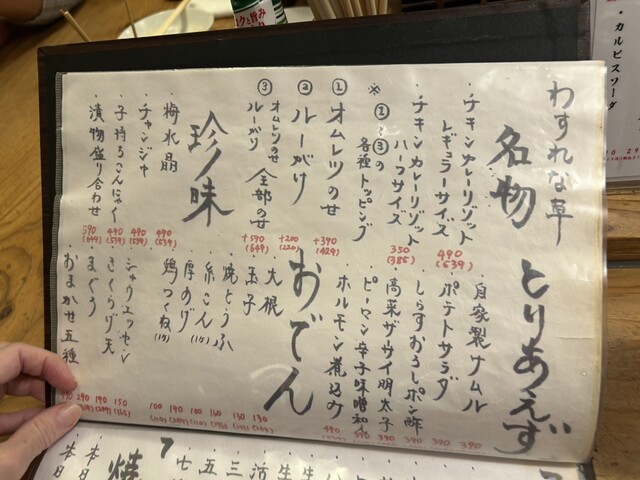 わすれな草
名物
・チキンカレーリゾット
レギュラーサイズ
490
(539)
・チキンカレーリゾット
ハーフサイズ
350
(385)
各種トッピング
① オムレツのせ
+390
(429)
② ルーがけ
+200
(220)
③ オムレツのせ
ルーがけ
全部のせ
+590
(649)
珍味
・梅水晶
490
(539)
・チャンジャ
490
(539)
・子持ちこんにゃく
490
(539)
・漬物盛り合わせ
590
(649)
とりあえず
・自家製ナムル
390
・ポテトサラダ
390
・しらすおろしポン酢
390
・高菜ザーサイ明太子
390
・ピーマン辛子味噌和え
390
・ホルモン煮込み
490
おでん
・大根
130
・玉子
130
・焼とうふ
160
・糸こん(1ケ)
100
・厚あげ
190
・鶏つくね(1ケ)
100
・シャウエッセン
150
(165)
・きくらげ天
190
(209)
・まぐろ
290
おまかせ五種
・カルピスソーダ